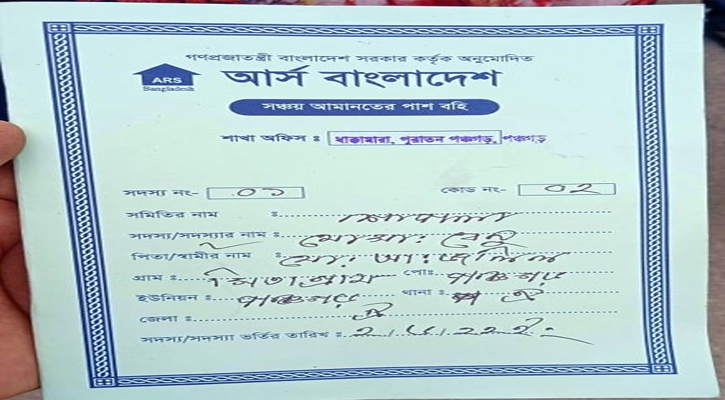 গণপ্রজাতন্ত্রী বাংলাদেশ সরকার কর্তৃক অনুমোদিত
ARS
Bangladesh
আর্স বাংলাদেশ
সঞ্চয় আমানতের পাশ বহি
শাখা অফিস ঃ ধাক্কামারা, পুরাতন পঞ্চগড়, পঞ্চগড়
সদস্য নং- ০১ কোড নং- ০২
সমিতির নাম ঃ
সদস্য/সদস্যার নাম ঃ মোছাঃ রেনু
পিতা/স্বামীর নাম ঃ মোঃ আঃ জলিল
গ্রাম ঃ পোঃ পঞ্চগড়
ইউনিয়ন ঃ পঞ্চগড় থানা ঃ ঐ
জেলা ঃ ঐ
সদস্য/সদস্যা ভর্তির তারিখ ঃ